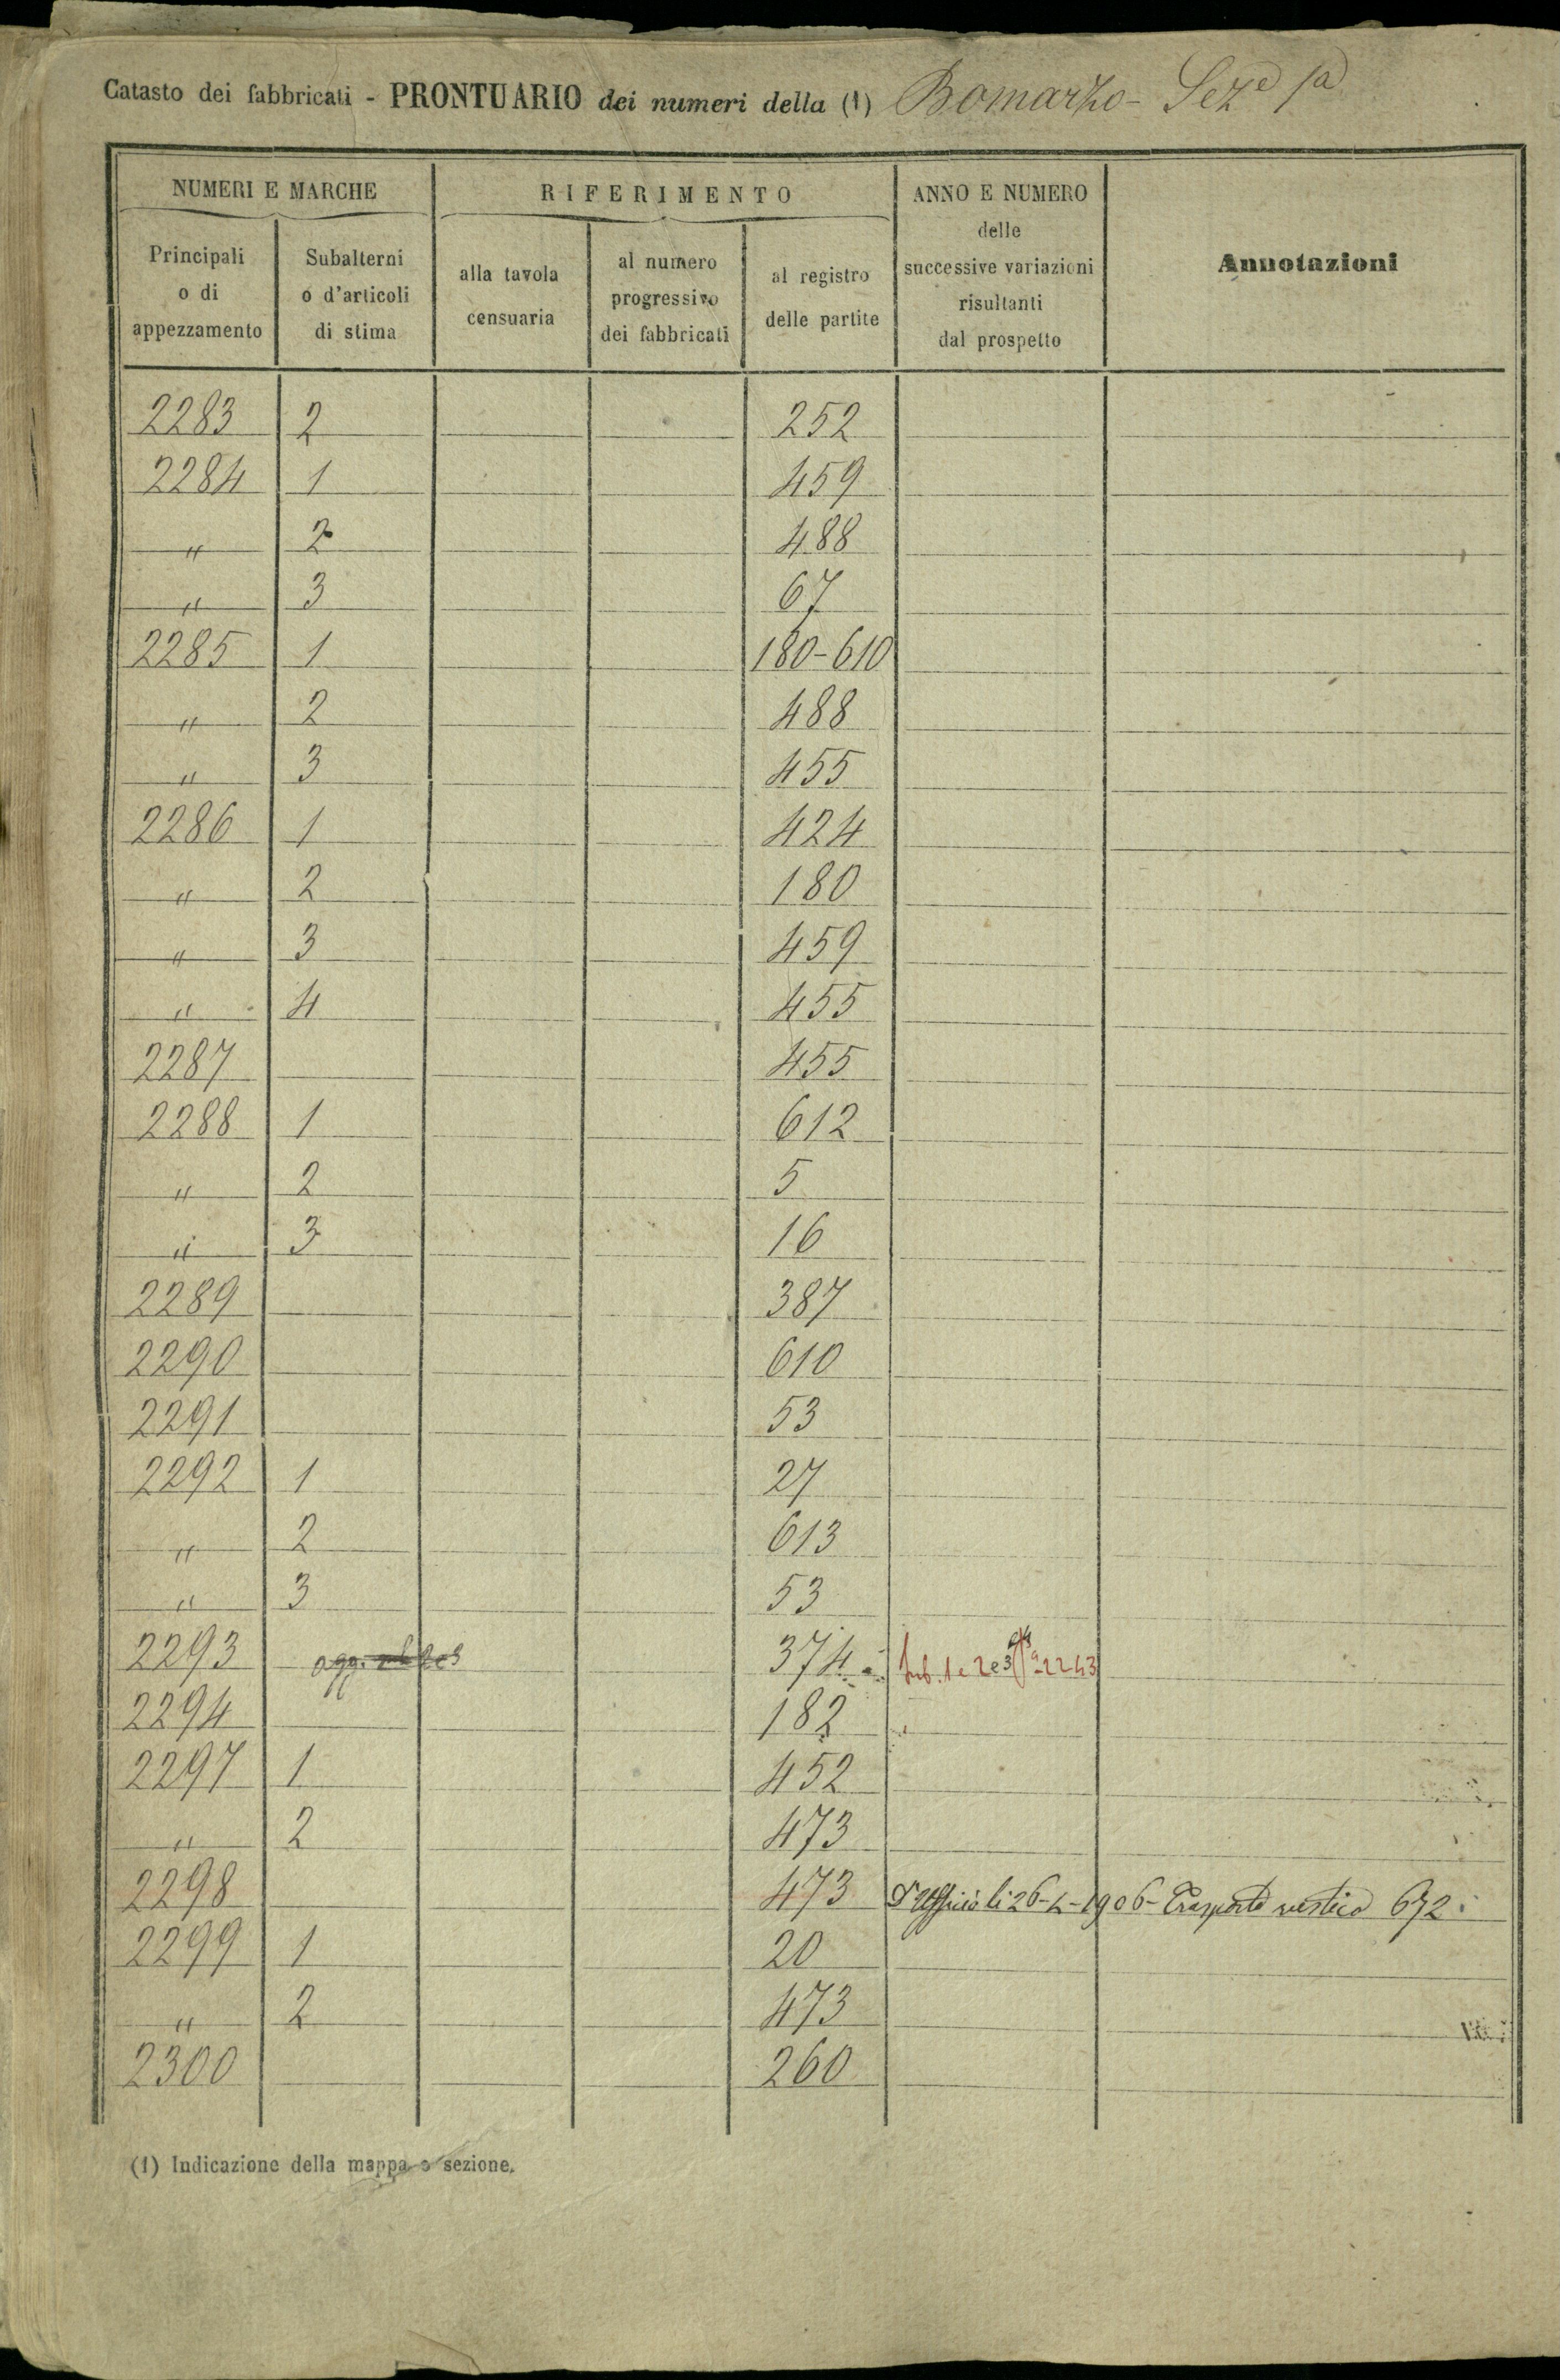 Catasto dei fabbricati - PRONTUARIO dei numeri della (1) Bomarzo - Seze 1a
NUMERI E MARCHE
RIFERIMENTO
ANNO E NUMERO
delle
successive variazioni
risultanti
dal prospetto
Annotazioni
Principali
o di
appezzamento
Subalterni
o d'articoli
di stima
alla tavola
censuaria
al numero
progressivo
dei fabbricati
al registro
delle partite
2283 2 252
2284 1 459
" 2 488
" 3 67
2285 1 180-610
" 2 488
" 3 455
2286 1 424
" 2 180
" 3 459
" 4 455
2287 455
2288 1 612
" 2 5
" 3 16
2289 387
2290 610
2291 53
2292 1 27
" 2 613
" 3 53
2293 agg. 374 Sub. 1 e 2 e 3 2243
2294 182
2297 1 452
" 2 473
2298 473 D'Ufficio li 26-1906- Trasporto rustico 672
2299 1 20
" 2 473
2300 260
(1) Indicazione della mappa o sezione.